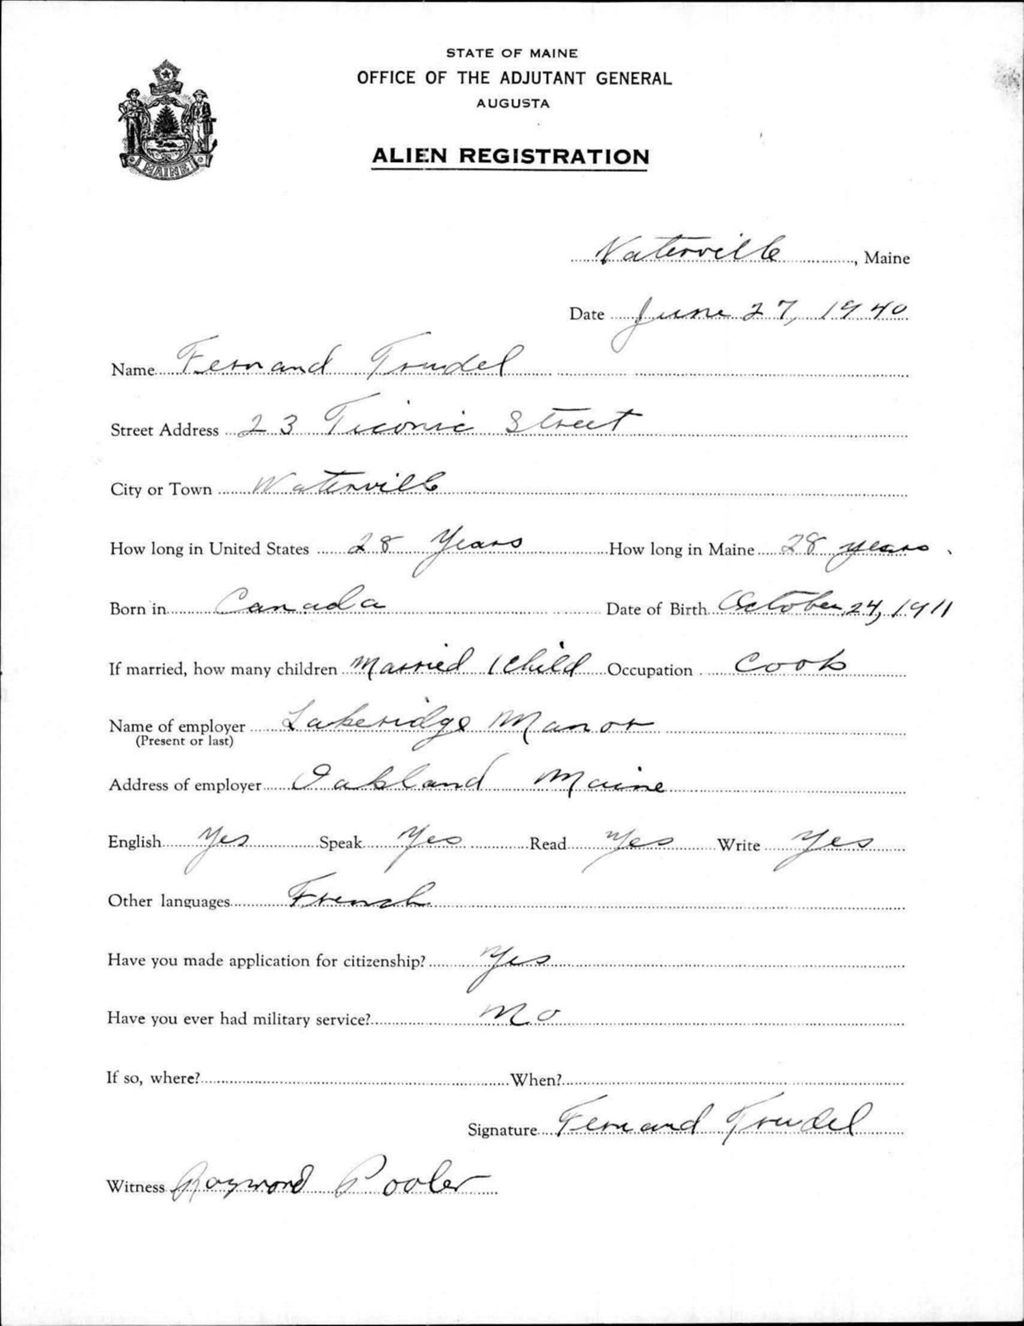 STATE OF MAINE
OFFICE OF THE ADJUTANT GENERAL
AUGUSTA
ALIEN REGISTRATION
MAINE
Waterville, Maine
Date June 27, 1940
Name Fernand Trudel
Street Address 23 Ticonic Street
City or Town Waterville
How long in United States 28 Years How long in Maine 28 years
Born in Canada Date of Birth October 24, 1911
If married, how many children Married 1 Child Occupation Cook
Name of employer Lakeridge Manor
(Present or last)
Address of employer Oakland Maine
English Yes Speak Yes Read Yes Write Yes
Other languages French
Have you made application for citizenship? Yes
Have you ever had military service? No
If so, where? When?
Signature Fernand Trudel
Witness Raymond Pooler